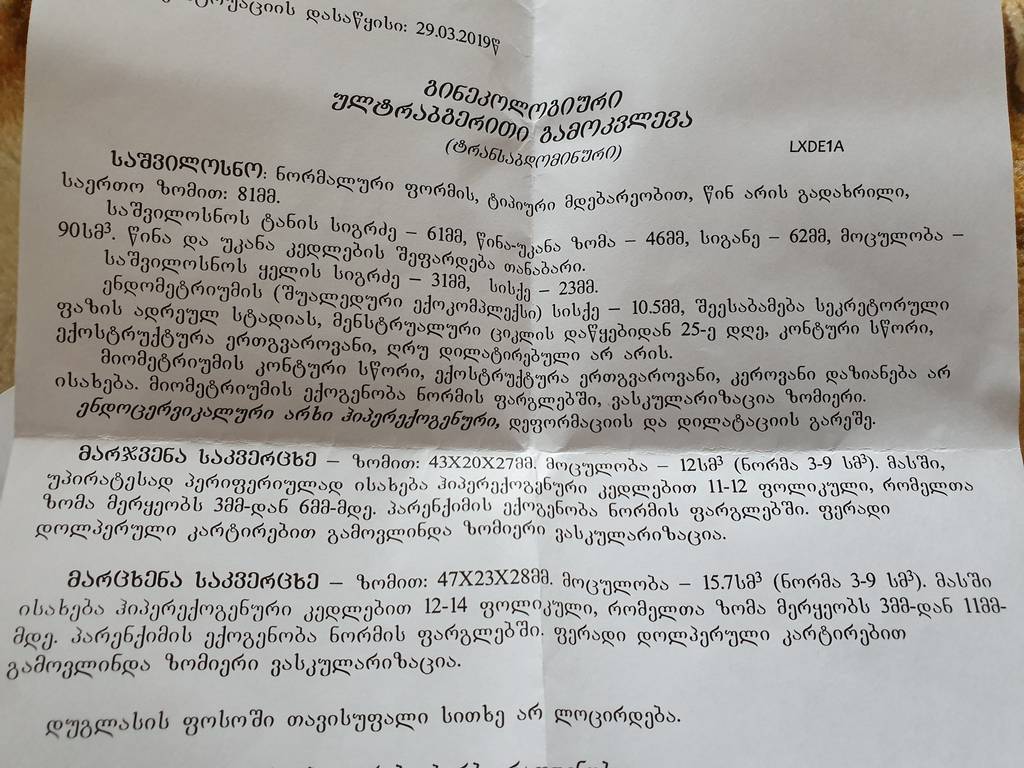 დასაწყისი: 29.03.2019წ
გინეკოლოგიური
ულტრაბგერითი გამოკვლევა
(ტრანსაბდომინური)
LXDE1A
საშვილოსნო: ნორმალური ფორმის, ტიპიური მდებარეობით, წინ არის გადახრილი,
საერთო ზომით: 81მმ.
საშვილოსნოს ტანის სიგრძე – 61მმ, წინა-უკანა ზომა – 46მმ, სიგანე – 62მმ, მოცულობა –
90სმ³. წინა და უკანა კედლების შეფარდება თანაბარი.
საშვილოსნოს ყელის სიგრძე – 31მმ, სისქე – 23მმ.
ენდომეტრიუმის (შუალედური ექოკომპლექსი) სისქე – 10.5მმ, შეესაბამება სეკრეტორული
ფაზის ადრეულ სტადიას, მენსტრუალური ციკლის დაწყებიდან 25-ე დღე, კონტური სწორი,
ექოსტრუქტურა ერთგვაროვანი, ღრუ დილატირებული არ არის.
მიომეტრიუმის კონტური სწორი, ექოსტრუქტურა ერთგვაროვანი, კეროვანი დაზიანება არ
ისახება. მიომეტრიუმის ექოგენობა ნორმის ფარგლებში, ვასკულარიზაცია ზომიერი.
ენდოცერვიკალური არხი ჰიპერექოგენური, დეფორმაციის და დილატაციის გარეშე.
მარჯვენა საკვერცხე – ზომით: 43X20X27მმ. მოცულობა – 12სმ³ (ნორმა 3-9 სმ³). მასში,
უპირატესად პერიფერიულად ისახება ჰიპერექოგენური კედლებით 11-12 ფოლიკული, რომელთა
ზომა მერყეობს 3მმ-დან 6მმ-მდე. პარენქიმის ექოგენობა ნორმის ფარგლებში. ფერადი
დოლპერული კარტირებით გამოვლინდა ზომიერი ვასკულარიზაცია.
მარცხენა საკვერცხე – ზომით: 47X23X28მმ. მოცულობა – 15.7სმ³ (ნორმა 3-9 სმ³). მასში
ისახება ჰიპერექოგენური კედლებით 12-14 ფოლიკული, რომელთა ზომა მერყეობს 3მმ-დან 11მმ-
მდე. პარენქიმის ექოგენობა ნორმის ფარგლებში. ფერადი დოლპერული კარტირებით
გამოვლინდა ზომიერი ვასკულარიზაცია.
დუგლასის ფოსოში თავისუფალი სითხე არ ლოცირდება.